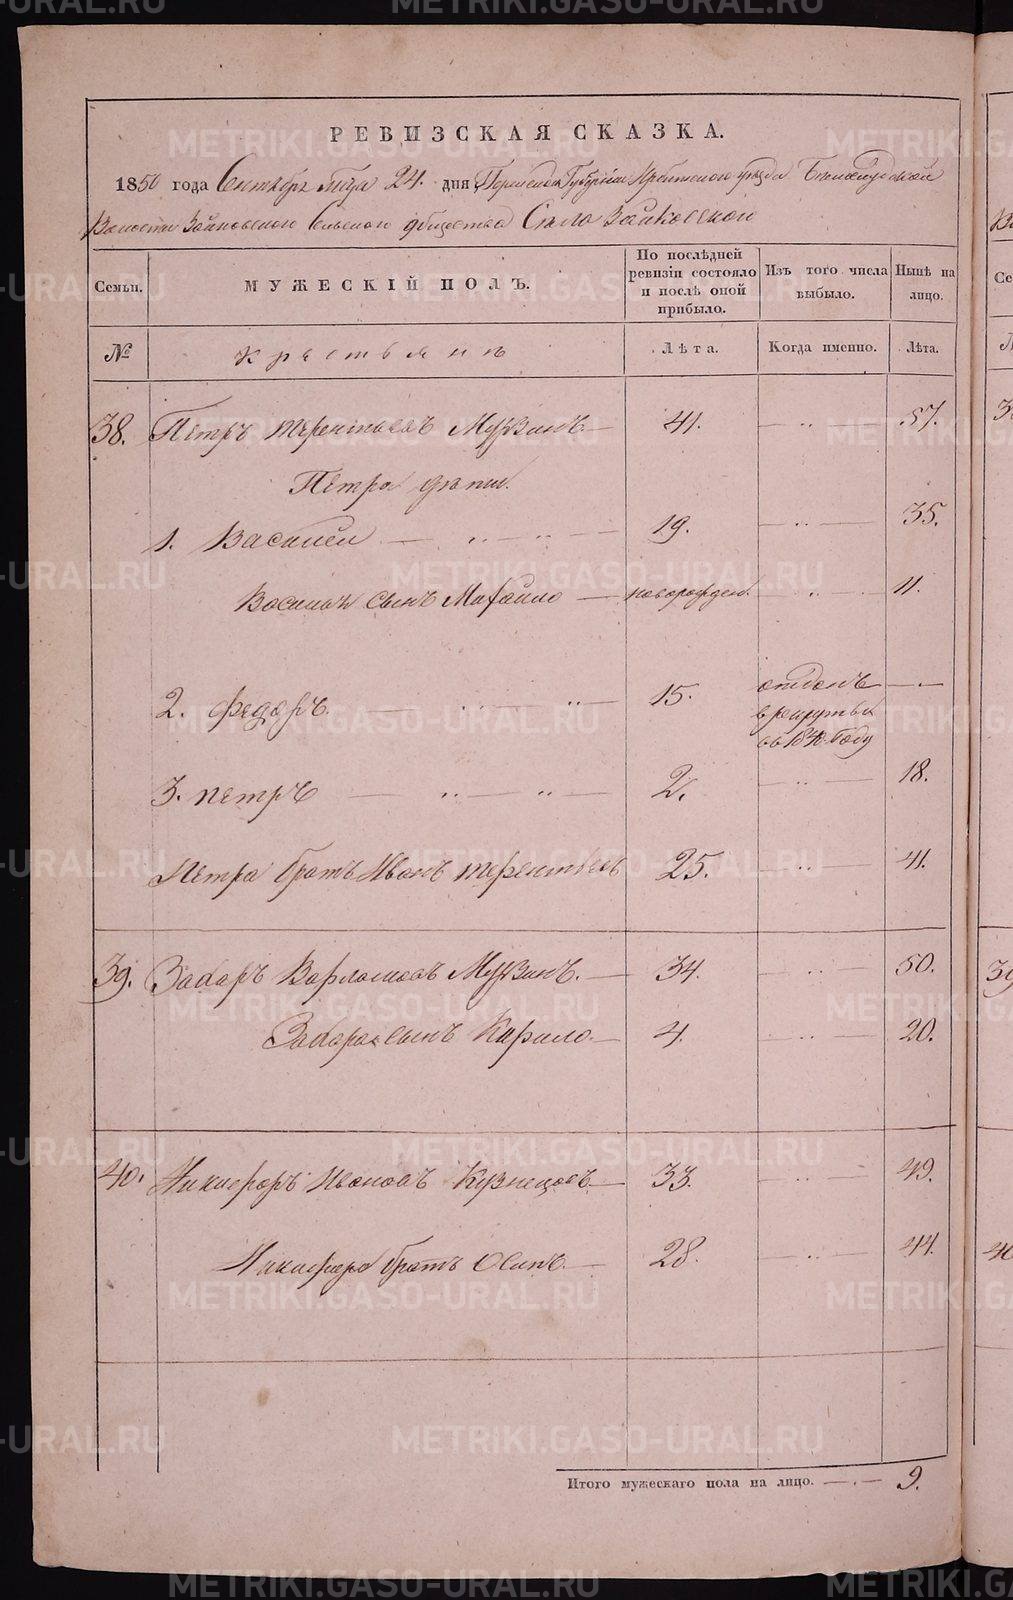 РЕВИЗСКАЯ СКАЗКА.
1850 года Сентября мѣсяца 24. дня Пермской Губернiи Ирбитского уѣзда
Волости Зайковского Сельского общества Села Зайковского
Семьи.
МУЖЕСКІЙ ПОЛЪ.
По послѣдней ревизіи состояло и послѣ оной прибыло.
Изъ того числа выбыло.
Нынѣ на лицо.
№
крестьянъ
Лѣта.
Когда именно.
Лѣта.
38. Петръ терентьевъ Мурзинъ — 41. — ·· — 57.
Петра дѣти.
1. Василей — ·· — ·· — 19. — ·· — 35.
Василья сынъ Михайло — новорожден. — ·· — 11.
2. Федоръ — ·· — ·· — 15. отданъ в рекруты въ 1840 Году — · —
3. петръ — ·· — ·· — 2. — ·· — 18.
Петра братъ Иванъ терентьевъ 25. — ·· — 41.
39. Захаръ Варламовъ Мурзинъ. — 34. — ·· — 50.
Захара сынъ Кирило — 4. — ·· — 20.
40. Никифоръ Ивановъ Кузнецовъ — 33. — ·· — 49.
Никифора братъ Осипъ — 28. — ·· — 44.
Итого мужескаго пола на лицо. — · — 9.
METRIKI.GASO-URAL.RU